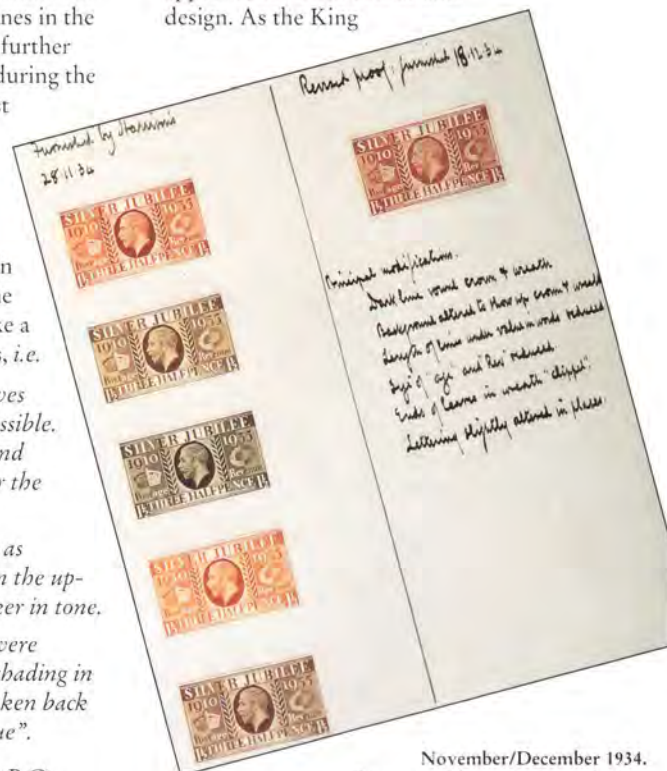 nes in the
further
during the
st
n
e
ke a
s, i.e.
ves
ssible.
nd
r the
as
n the up-
er in tone.
vere
hading in
ken back
ue".
design. As the King
Furnished by Harrisons
28.11.34
SILVER JUBILEE
1910 1935
THREE HALFPENCE
SILVER JUBILEE
1910 1935
THREE HALFPENCE
SILVER JUBILEE
1910 1935
THREE HALFPENCE
SILVER JUBILEE
1910 1935
THREE HALFPENCE
SILVER JUBILEE
1910 1935
THREE HALFPENCE
Revised proof. furnished 18.12.34
SILVER JUBILEE
1910 1935
THREE HALFPENCE
Principal modifications.
Dark line round crown & wreath
Background altered to throw up crown & wreath
Length of lines under value in words reduced
Size of "age" and "Rev" reduced.
Ends of leaves in wreath "clipped".
Lettering slightly altered in places.
November/December 1934.